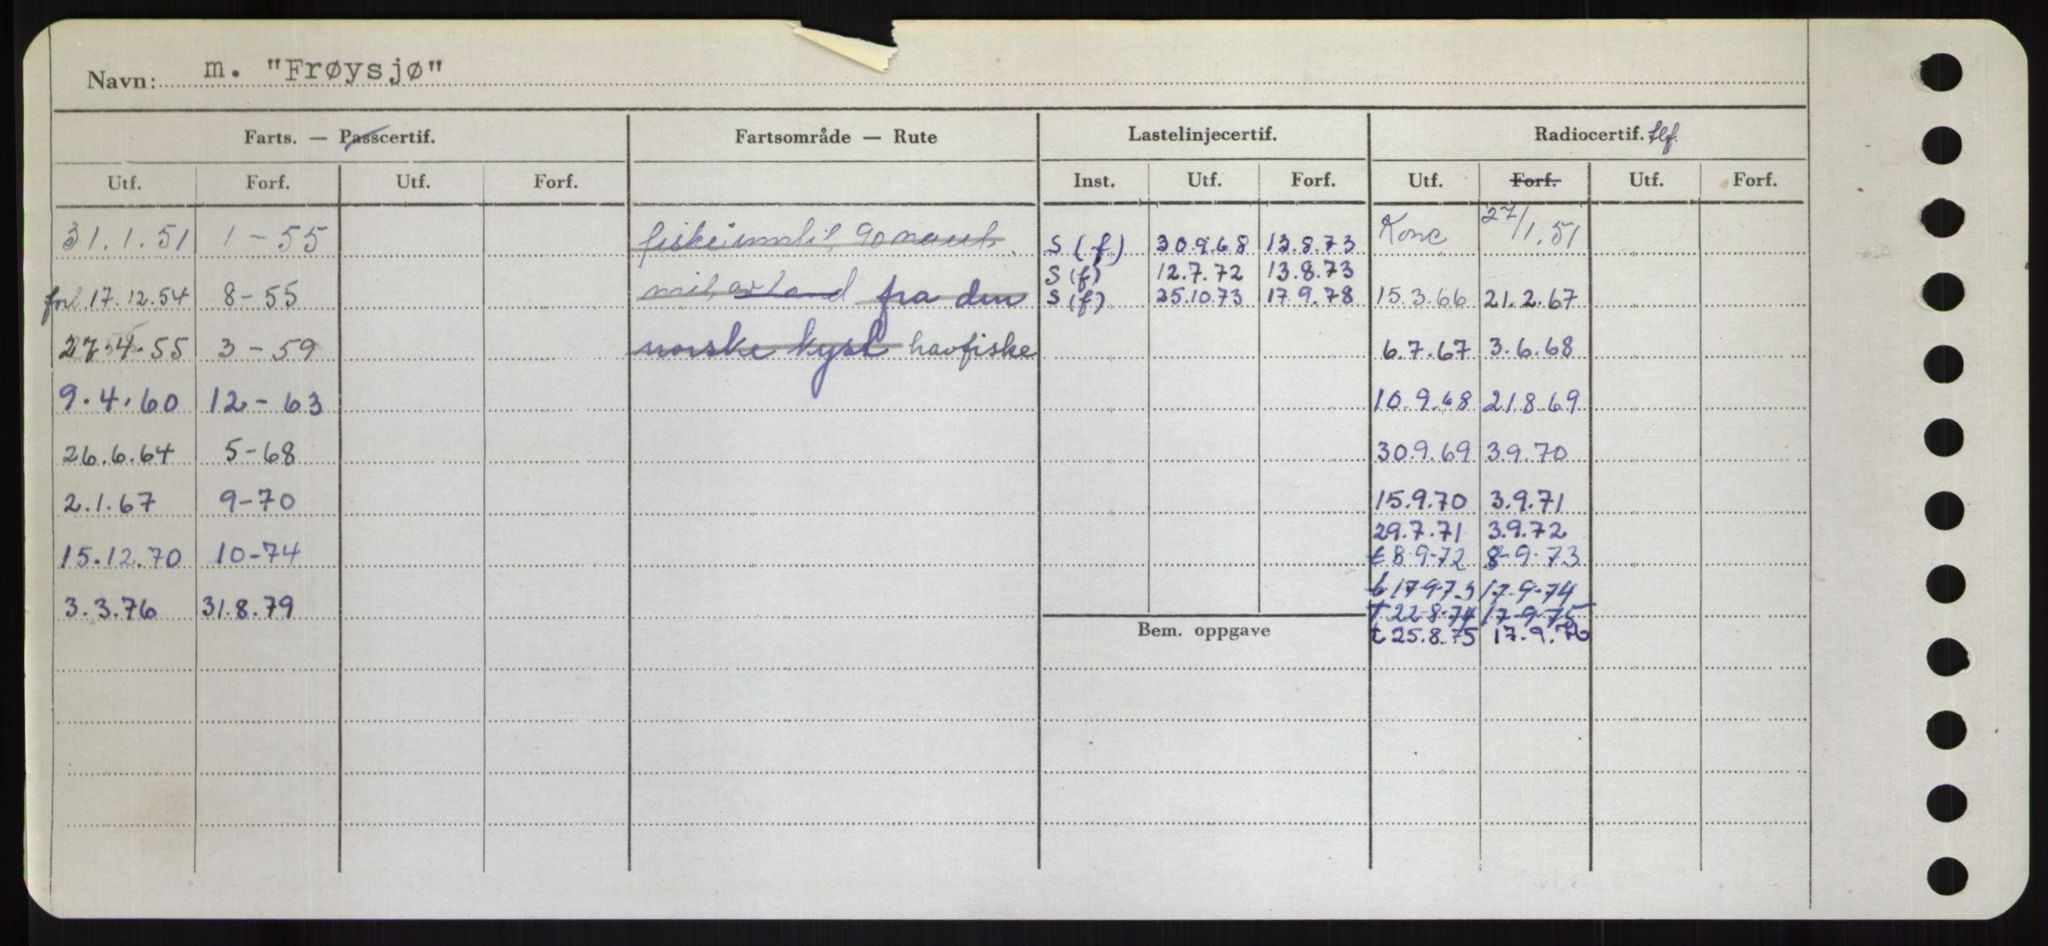 Navn: m. "Frøysjø"
Farts. — Passcertif. Fartsområde — Rute Lastelinjecertif. Radiocertif. tlf.
Utf. Forf. Utf. Forf. Inst. Utf. Forf. Utf. Forf. Utf. Forf.
31.1.51 1-55 fiske inntil 90 naut. S (f) 30.9.68 13.8.73 Konc 27/1.51
S (f) 12.7.72 13.8.73
forl 17.12.54 8-55 mil avstand fra den S (f) 25.10.73 17.9.78 15.3.66 21.2.67
27.4.55 3-59 norske kyst havfiske 6.7.67 3.6.68
9.4.60 12-63 10.9.68 21.8.69
26.6.64 5-68 30.9.69 3.9.70
2.1.67 9-70 15.9.70 3.9.71
29.7.71 3.9.72
15.12.70 10-74 t 8-9-72 8-9-73
t 17-9-73 17-9-74
3.3.76 31.8.79 T 22-8-74 17-9-75
Bem. oppgave t 25.8.75 17.9.76